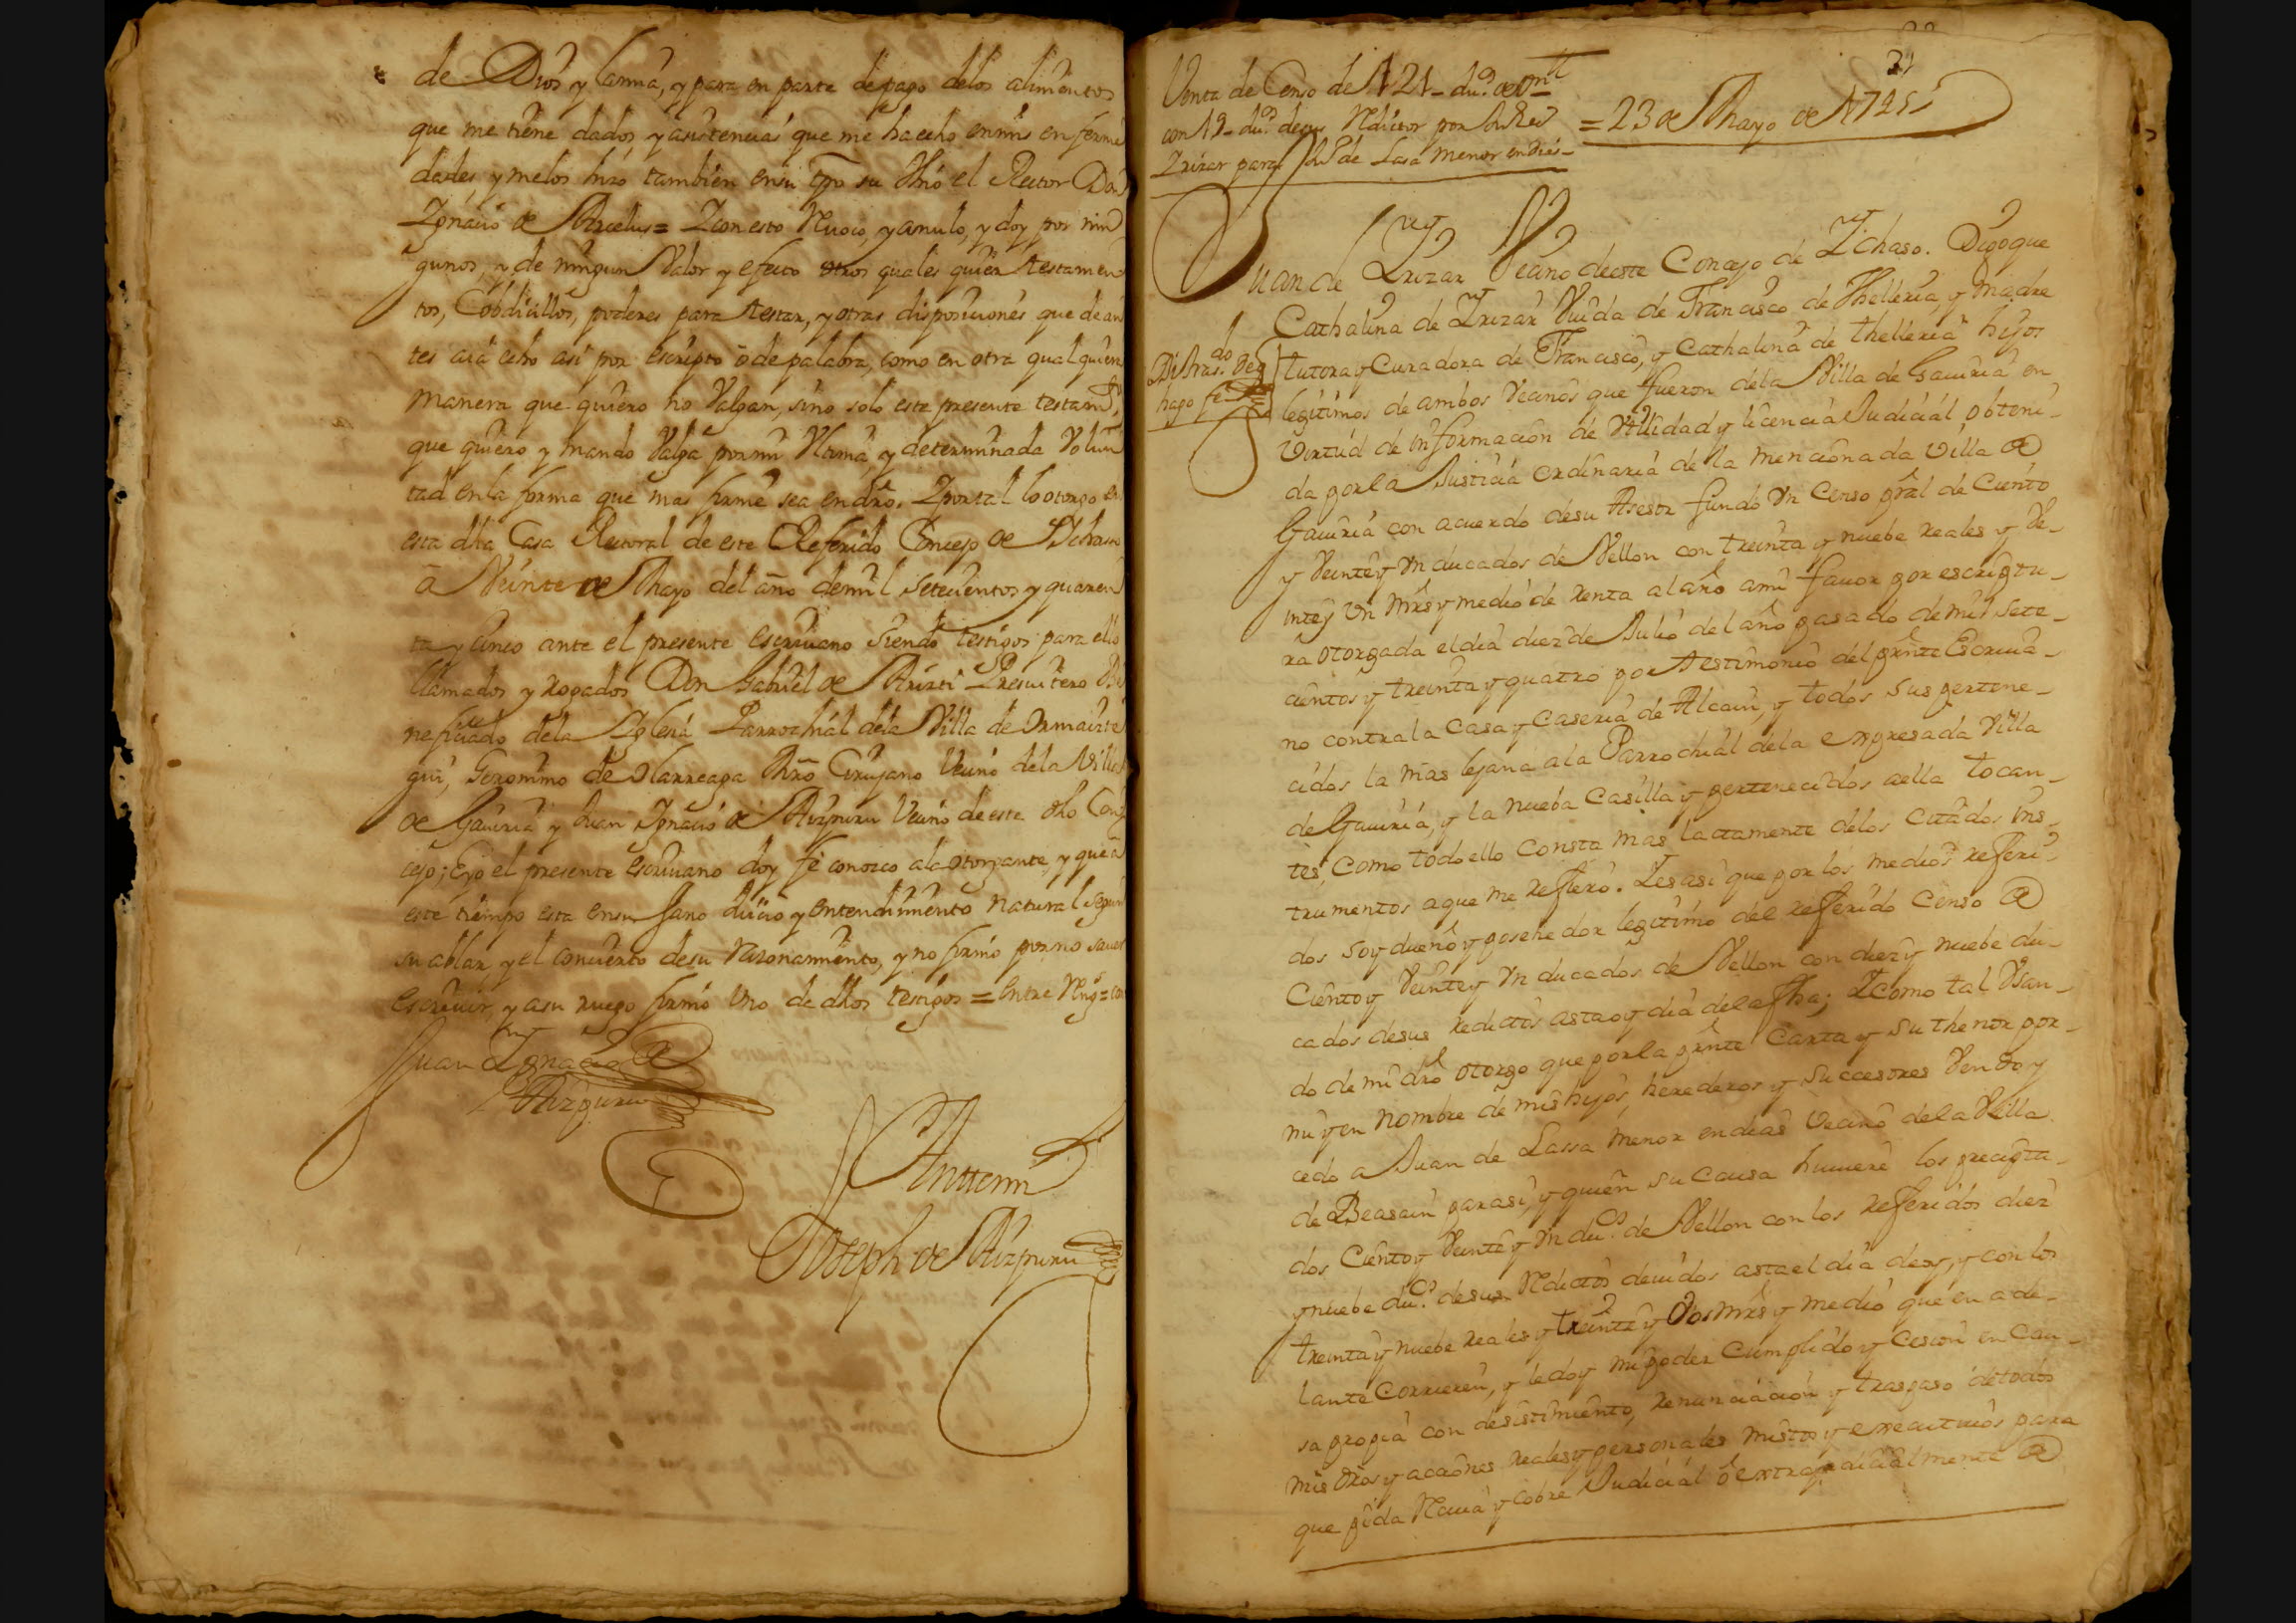 de Dios y larma, y para en parte de pago delos alimentos
que me tiene dados, y asistencias que me ha echo en mis enferme
dades, y melos hizo tambien ensu tpo su Thio el Rector Don
Ignacio de Arcelus = Y con esto Revoco, y anulo, y doy por nin
gunos, y de ningun Valor y efecto otros quales quier testamen
tos, Cobdicillos, poderes para testar, y otras disposiciones que de an
tes aia echo asi por escripto ō de palabra, como en otra qual quiera
manera que quiero no Valgan, sino solo este presente testamto
que quiero y mando Valga por mi Vltima, y determinada Volun
tad en la forma que mas firme sea en dro. Y por tal lo otorgo en
esta dha Casa Rectoral de este Referido Concejo de Ychaso
à Veinte de Mayo del año de mil setecientos y quaren
ta y cinco ante el presente escriuano siendo testigos para ello
llamados y rogados Don Gabriel de Aristi Presuitero Be
neficiado dela Yglesia Parrochial dela Villa de Ormaizte
gui, Geronimo de Olarreaga Mro Cirujano Vecino dela Villa
de Gauiria y Juan Ignacio de Aizpuru Vecino de este dho Con
cejo; Eyo el presente escriuano doy fe conozco ala otorgante, y que a
este tiempo esta en su sano Juicio y entendimiento natural segun
su ablar, y el concierto desu Razonamiento, y no firmo por no sauer
escreuir, y asu ruego firmo Vno de dhos testigos = entre Rengs = con
Juan Ignacio de
Aizpuru
Antemi
Joseph de Aizpuru
21
Venta de Censo de 121 ducs de prl
con 19 ducs de sus Reditos por Juan de
Yrizar para Jn de Lasa menor en dias
= 23 de Mayo de 1745
Juan de Yrizar Vecino deeste Concejo de Ychaso. Digo que
Cathalina de Yrizar Viuda de Francisco de Thelleria, y madre
tutora y Curadora de Francisco, y Cathalina de thelleria hijos
legitimos de ambos Vecinos que fueron dela Villa de Gauiria en
Virtud de informacion de Vtilidad y licencia Judicial obteni-
da por la Justicia ordinaria de la mencionada Villa de
Gauiria con acuerdo desu Asesor fundò Vn Censo pral de Ciento
y Veinte y Vn ducados de Vellon con treinta y nuebe reales y Ve-
inte y Vn mrs y medio de renta al año ami fauor por escriptu-
ra otorgada el dia diez de Julio del año pasado de mil sete-
cientos y treinta y quatro por testimonio del prnte Escriua-
no contra la Casa y Caseria de Alcain, y todos sus pertene-
cidos la mas lejana ala Parrochial dela expresada Villa
de Gauiria, y la nueba Casilla y pertenecidos aella tocan-
tes, como todo ello consta mas lactamente delos citados ins-
trumentos aque me refiero. Y es asi que por los medios referi-
dos soy dueño y posehedor legitimo del referido Censo de
Ciento y Veinte y Vn ducados de Vellon con diez y nuebe du-
cados desus redictos asta oy dia dela fha; Y como tal Vsan-
do de mi dro otorgo que por la prnte Carta y su thenor por
mi y en nombre de mis hijos, herederos y succesores Vendo y
cedo a Juan de Lassa menor en dias Vecino dela Villa
de Beasain para si, y quien su causa huuiere los precipta-
dos Ciento y Veinte y Vn ducs de Vellon con los referidos diez
y nuebe ducs desus Redictos deuidos asta el dia deoy, y con los
treinta y nuebe reales y treinta y dos mrs y medio que en ade-
lante Corrieren, y le doy mi poder Cumplido y Cesion en Cau-
sa propia con desistimiento, renunciacion y traspaso de todos
mis dros y acciones reales y personales mistos y executiuos para
que pida Reciua y cobre Judicial ò extrajudicialmente de